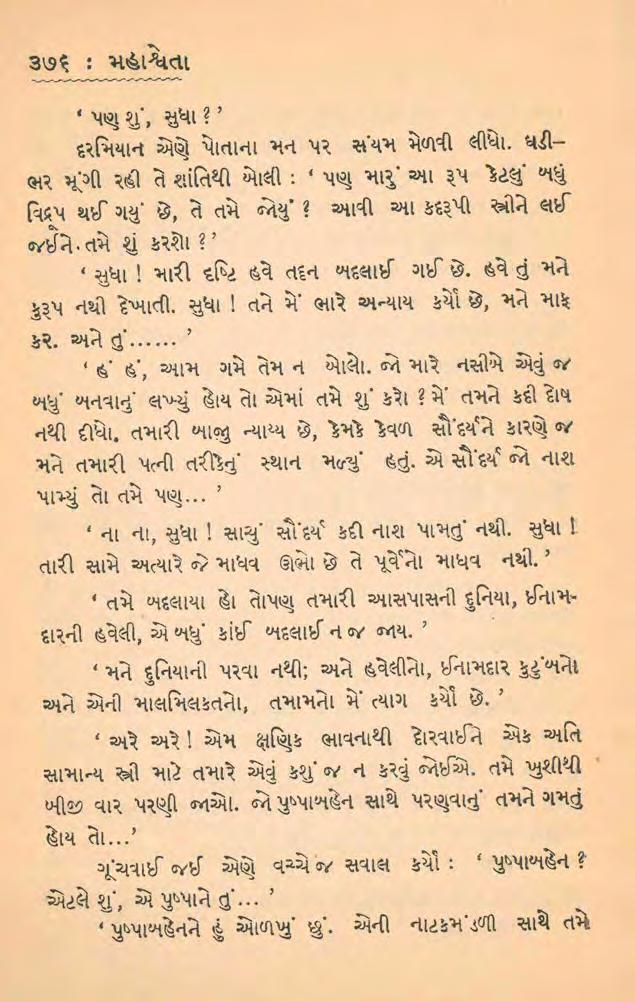 ૩૭૬ : મહાશ્વેતા
‘ પણ શું, સુધા ? ’
દરમિયાન એણે પોતાના મન પર સંયમ મેળવી લીધો. ઘડી–
ભર મૂંગી રહી તે શાંતિથી બોલી : ‘ પણ મારું આ રૂપ કેટલું બધું
વિદ્રૂપ થઈ ગયું છે, તે તમે જોયું ? આવી આ કદરૂપી સ્ત્રીને લઈ
જઈને તમે શું કરશો ? ’
‘ સુધા ! મારી દૃષ્ટિ હવે તદ્દન બદલાઈ ગઈ છે. હવે તું મને
કુરૂપ નથી દેખાતી. સુધા ! તને મેં ભારે અન્યાય કર્યો છે, મને માફ
કર. અને તું...... ’
‘ હં હં, આમ ગમે તેમ ન બોલો. જો મારે નસીબે એવું જ
બધું બનવાનું લખ્યું હોય તો એમાં તમે શું કરો ? મેં તમને કદી દોષ
નથી દીધો. તમારી બાજુ ન્યાય્ય છે, કેમકે કેવળ સૌંદર્યને કારણે જ
મને તમારી પત્ની તરીકેનું સ્થાન મળ્યું હતું. એ સૌંદર્ય જો નાશ
પામ્યું તો તમે પણ... ’
‘ ના ના, સુધા ! સાચું સૌંદર્ય કદી નાશ પામતું નથી. સુધા !
તારી સામે અત્યારે જે માધવ ઊભો છે તે પૂર્વેનો માધવ નથી. ’
‘ તમે બદલાયા હો તોપણ તમારી આસપાસની દુનિયા, ઈનામ-
દારની હવેલી, એ બધું કાંઈ બદલાઈ ન જ જાય. ’
‘ મને દુનિયાની પરવા નથી; અને હવેલીનો, ઈનામદાર કુટુંબનો
અને એની માલમિલકતનો, તમામનો મેં ત્યાગ કર્યો છે. ’
‘ અરે અરે ! એમ ક્ષણિક ભાવનાથી દોરવાઈને એક અતિ
સામાન્ય સ્ત્રી માટે તમારે એવું કશું જ ન કરવું જોઈએ. તમે ખુશીથી
બીજી વાર પરણી જાઓ. જો પુષ્પાબહેન સાથે પરણવાનું તમને ગમતું
હોય તો...’
ગૂંચવાઈ જઈ એણે વચ્ચે જ સવાલ કર્યો : ‘ પુષ્પાબહેન ?
એટલે શું, એ પુષ્પાને તું... ’
‘ પુષ્પાબહેનને હું ઓળખું છું. એની નાટકમંડળી સાથે તમે